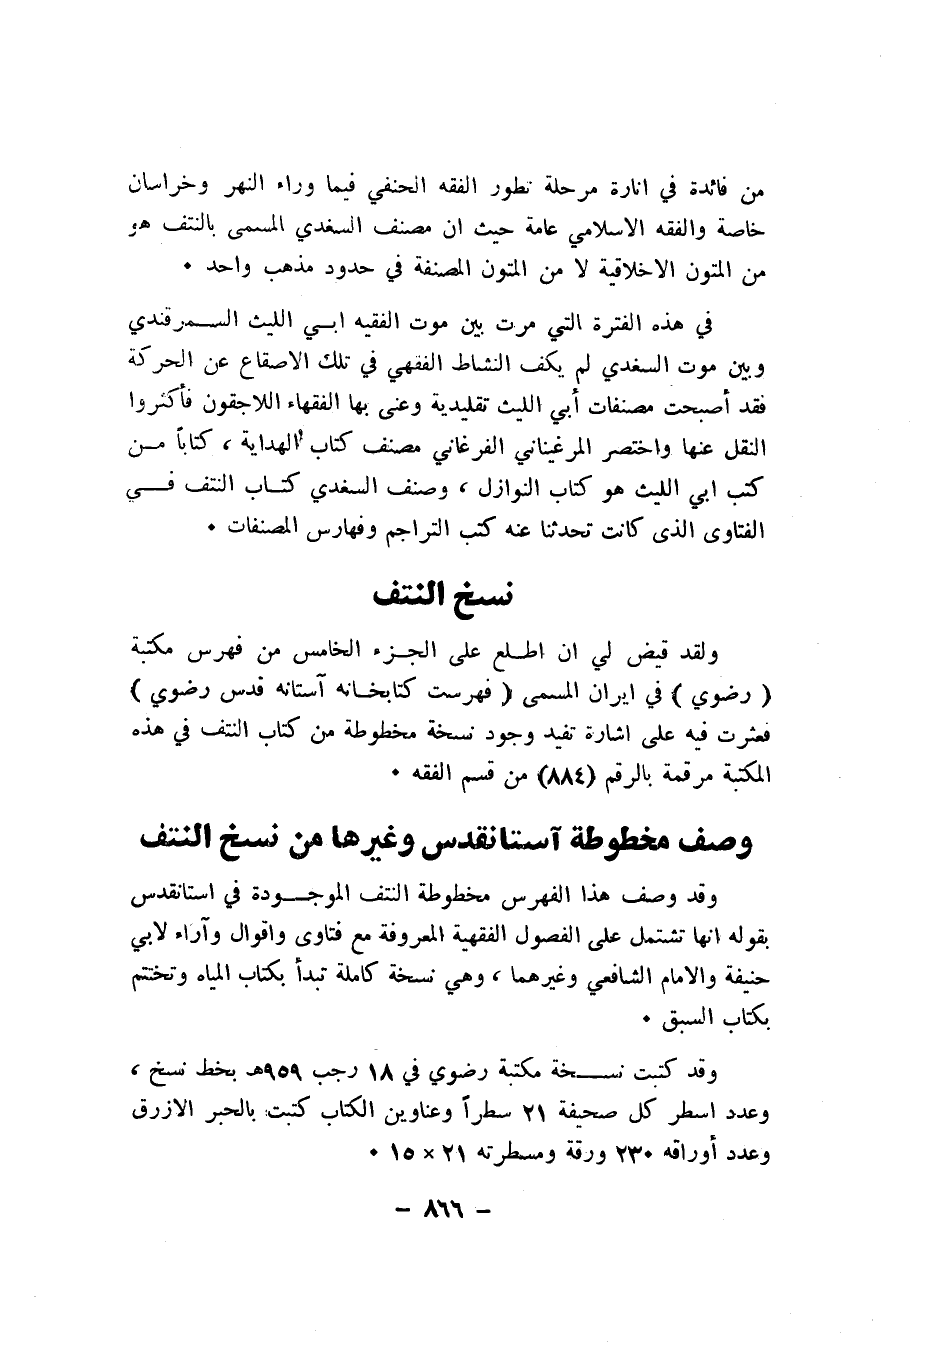 من فائدة في انارة مرحلة تطور الفقه الحنفي فيما وراء النهر وخراسان
خاصة والفقه الاسلامي عامة حيث ان مصنف السغدي المسمى بالنتف هو
من المتون الاخلاقية لا من المتون المصنفة في حدود مذهب واحد ٠
في هذه الفترة التي مرت بين موت الفقيه ابـي الليث الســمرقندي
وبين موت السغدي لم يكف النشاط الفقهي في تلك الاصقاع عن الحركة
فقد أصبحت مصنفات أبي الليث تقليدية وعنى بها الفقهاء اللاجقون فأكثروا
النقل عنها واختصر المرغيناني الفرغاني مصنف كتاب الهداية ، كتاباً مــن
كتب ابي الليث هو كتاب النوازل ، وصنف السغدي كتــاب النتف فــي
الفتاوى الذى كانت تحدثنا عنه كتب التراجم وفهارس المصنفات ٠
نسخ النتف
ولقد قيض لي ان اطـلع على الجـزء الخامس من فهرس مكتبة
( رضوي ) في ايران المسمى ( فهرست كتابخـانه آستانه قدس رضوي )
فعثرت فيه على اشارة تفيد وجود نسخة مخطوطة من كتاب النتف في هذه
المكتبة مرقمة بالرقم (٨٨٤) من قسم الفقه ٠
وصف مخطوطة آستانقدس وغيرها من نسخ النتف
وقد وصف هذا الفهرس مخطوطة النتف الموجــودة في استانقدس
بقوله انها تشتمل على الفصول الفقهية المعروفة مع فتاوى واقوال وآراء لابي
حنيفة والامام الشافعي وغيرهما ، وهي نسخة كاملة تبدأ بكتاب المياه وتختتم
بكتاب السبق ٠
وقد كتبت نســخة مكتبة رضوي في ١٨ رجب ٩٥٩هـ بخط نسخ ،
وعدد اسطر كل صحيفة ٢١ سطراً وعناوين الكتاب كتبت بالحبر الازرق
وعدد أوراقه ٢٣٠ ورقة ومسطرته ٢١ × ١٥ ٠
– ٨٦٦ –